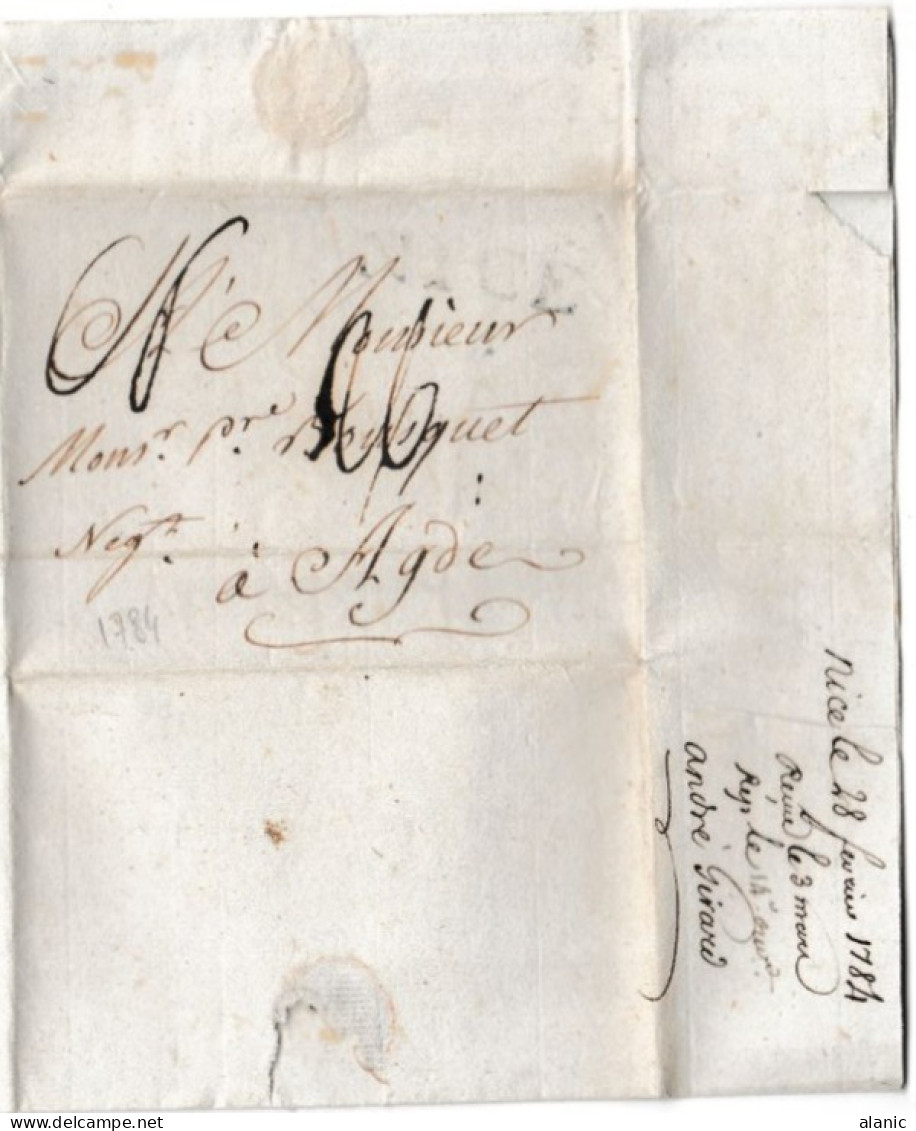 NICE
A Monsieur
Monsr. pre. Bousquet
Negt.
à Agde
1784
Nice le 28 fevrier 1784
Reçue le 3 mars
Rep le 14 
andré Girard
alanic